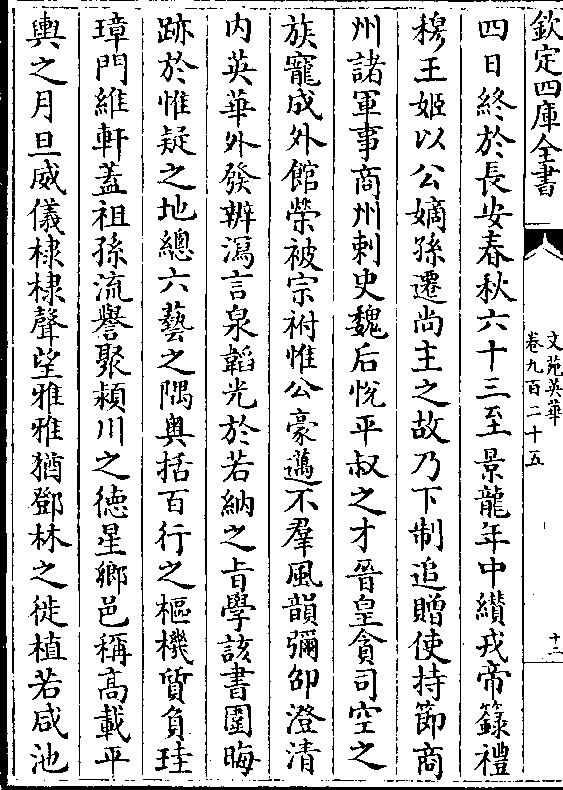 欽定四庫全書
文苑英華
卷九百二十五
十二
四日終於長安春秋六十三至景龍年中纘戎帝籙禮
穆王姬以公嫡孫遷尚主之故乃下制追贈使持節商
州諸軍事商州刺史魏后悅平叔之才晉皇貪司空之
族寵成外館榮被宗祔惟公豪邁不羣風韻彌卲澄清
内英華外發辨瀉言泉韜光於若納之旨學該書圃晦
跡於惟疑之地總六藝之隅奥括百行之樞機質負珪
璋門維軒蓋祖孫流譽聚潁川之徳星鄉邑稱髙載平
輿之月旦威儀棣棣聲望雅雅猶鄧林之徙植若咸池